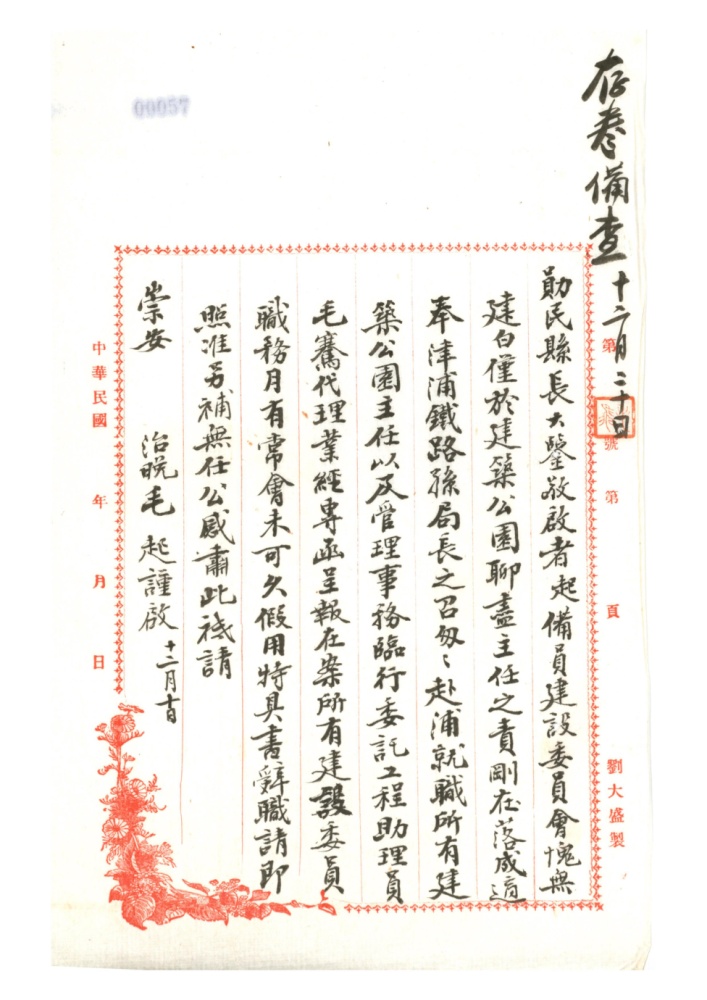 00057
存卷備查
十二月二十日
第 號 第 頁
劉大盛製
勛民縣長大鑒敬啟者起備員建設委員會愧無
建白僅於建築公園聊盡主任之責剛在落成適
奉津浦鐵路孫局長之召匆匆赴浦就職所有建
築公園主任以及管理事務臨行委託工程助理員
毛騫代理業經專函呈報在案所有建設委員
職務月有常會未可久假用特具書辭職請即
照准另補無任公感肅此祗請
崇安
治晚毛起謹啟
十二月十日
中華民國 年 月 日